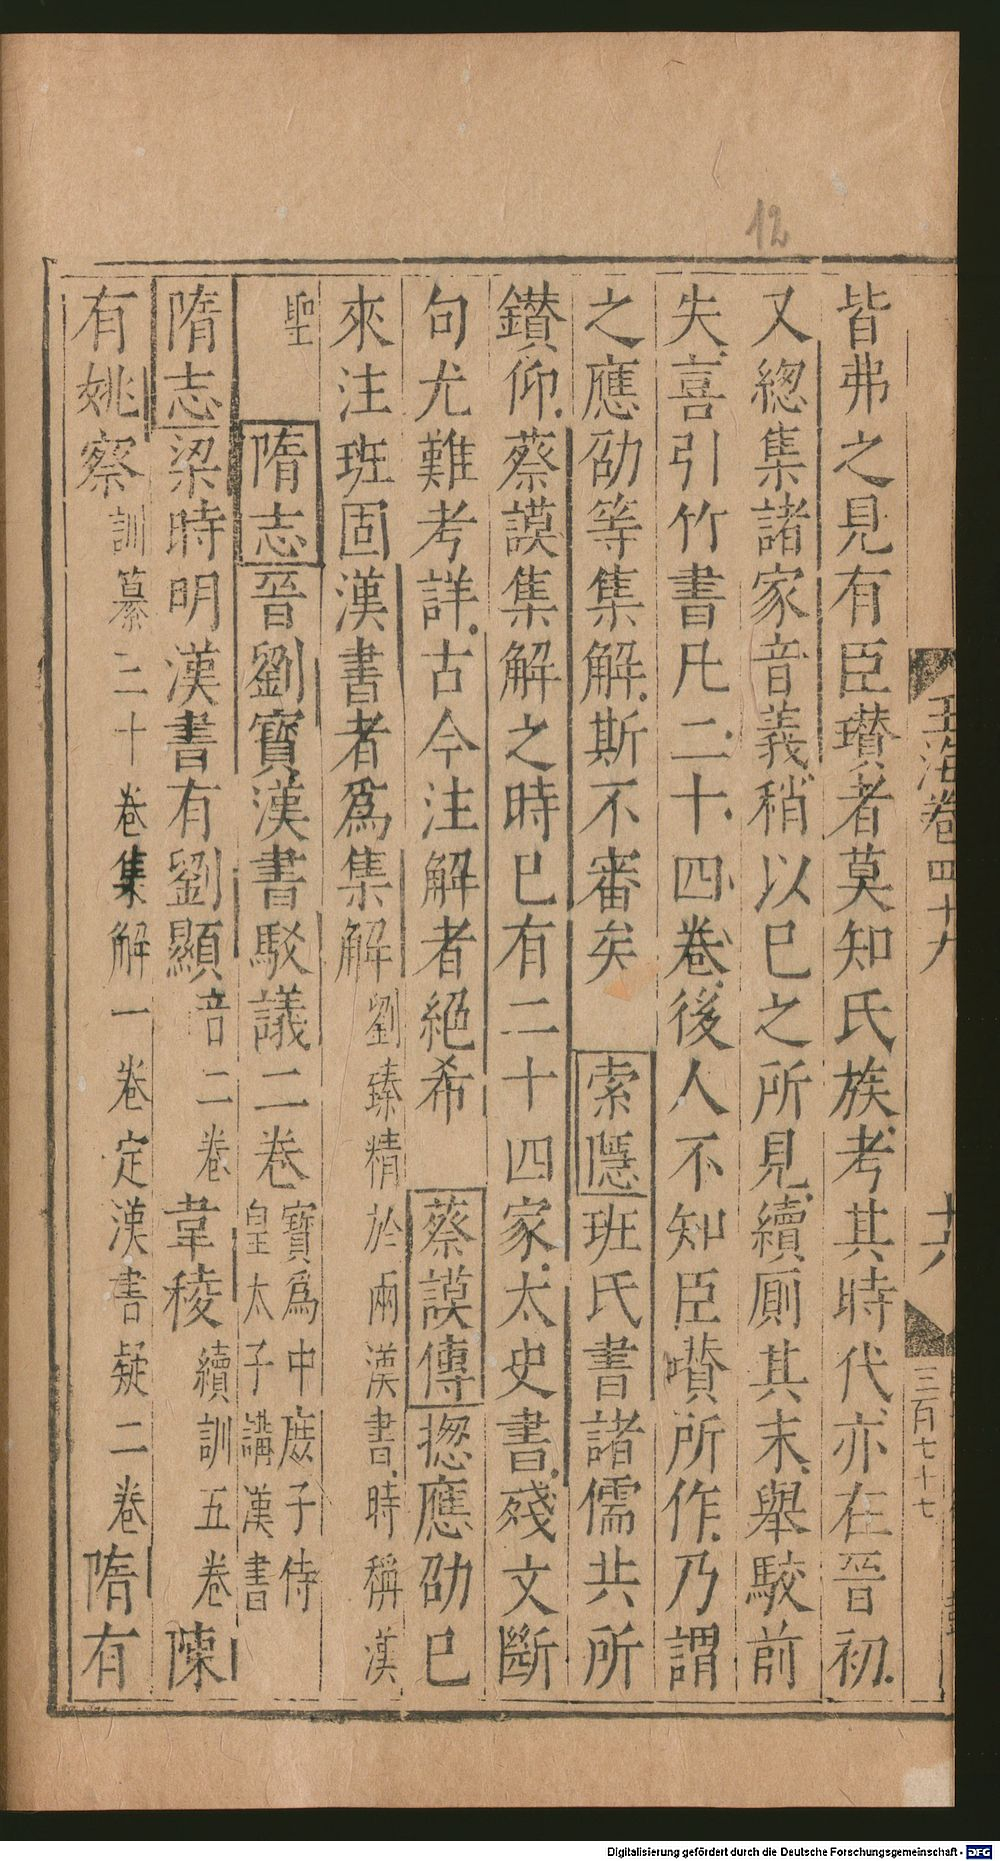 12
玉海卷四十九
十六
三百七十七
皆弗之見有臣瓚者莫知氏族考其時代亦在晉初
又總集諸家音義稍以己之所見續廁其末舉駮前
失喜引竹書凡二十四卷後人不知臣瓚所作乃謂
之應劭等集解斯不審矣 索隱班氏書諸儒共所
鑚仰蔡謨集解之時已有二十四家太史書殘文斷
句尤難考詳古今注解者絕希 蔡謨傳揔應劭已
來注班固漢書者爲集解劉臻精於兩漢書時稱漢
聖 隋志晉劉寶漢書駮議二卷寶爲中庻子侍皇太子講漢書
隋志梁時明漢書有劉顯音二卷韋稜續訓五卷陳
有姚察訓纂三十卷集解一卷定漢書疑二卷隋有
Digitalisierung gefördert durch die Deutsche Forschungsgemeinschaft - DFG